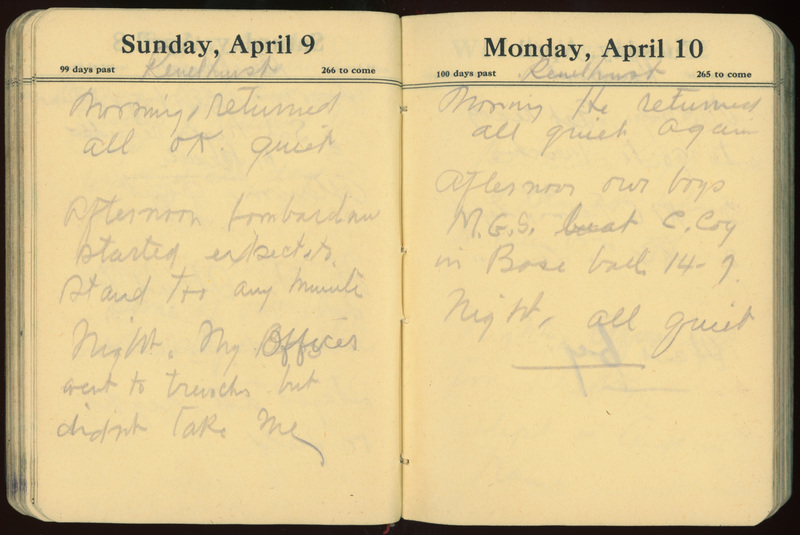 Sunday, April 9
99 days past
266 to come
Morning, returned
all OK. quiet
Afternoon bombardmn
started expected to
stand to any minute
Night. My Officer
went to trenches but
didn't take me
Monday, April 10
100 days past
265 to come
Morning He returned
all quiet again
Afternoon our boys
M.G.S. beat C. Coy
in Base ball 14-9
Night, all quiet